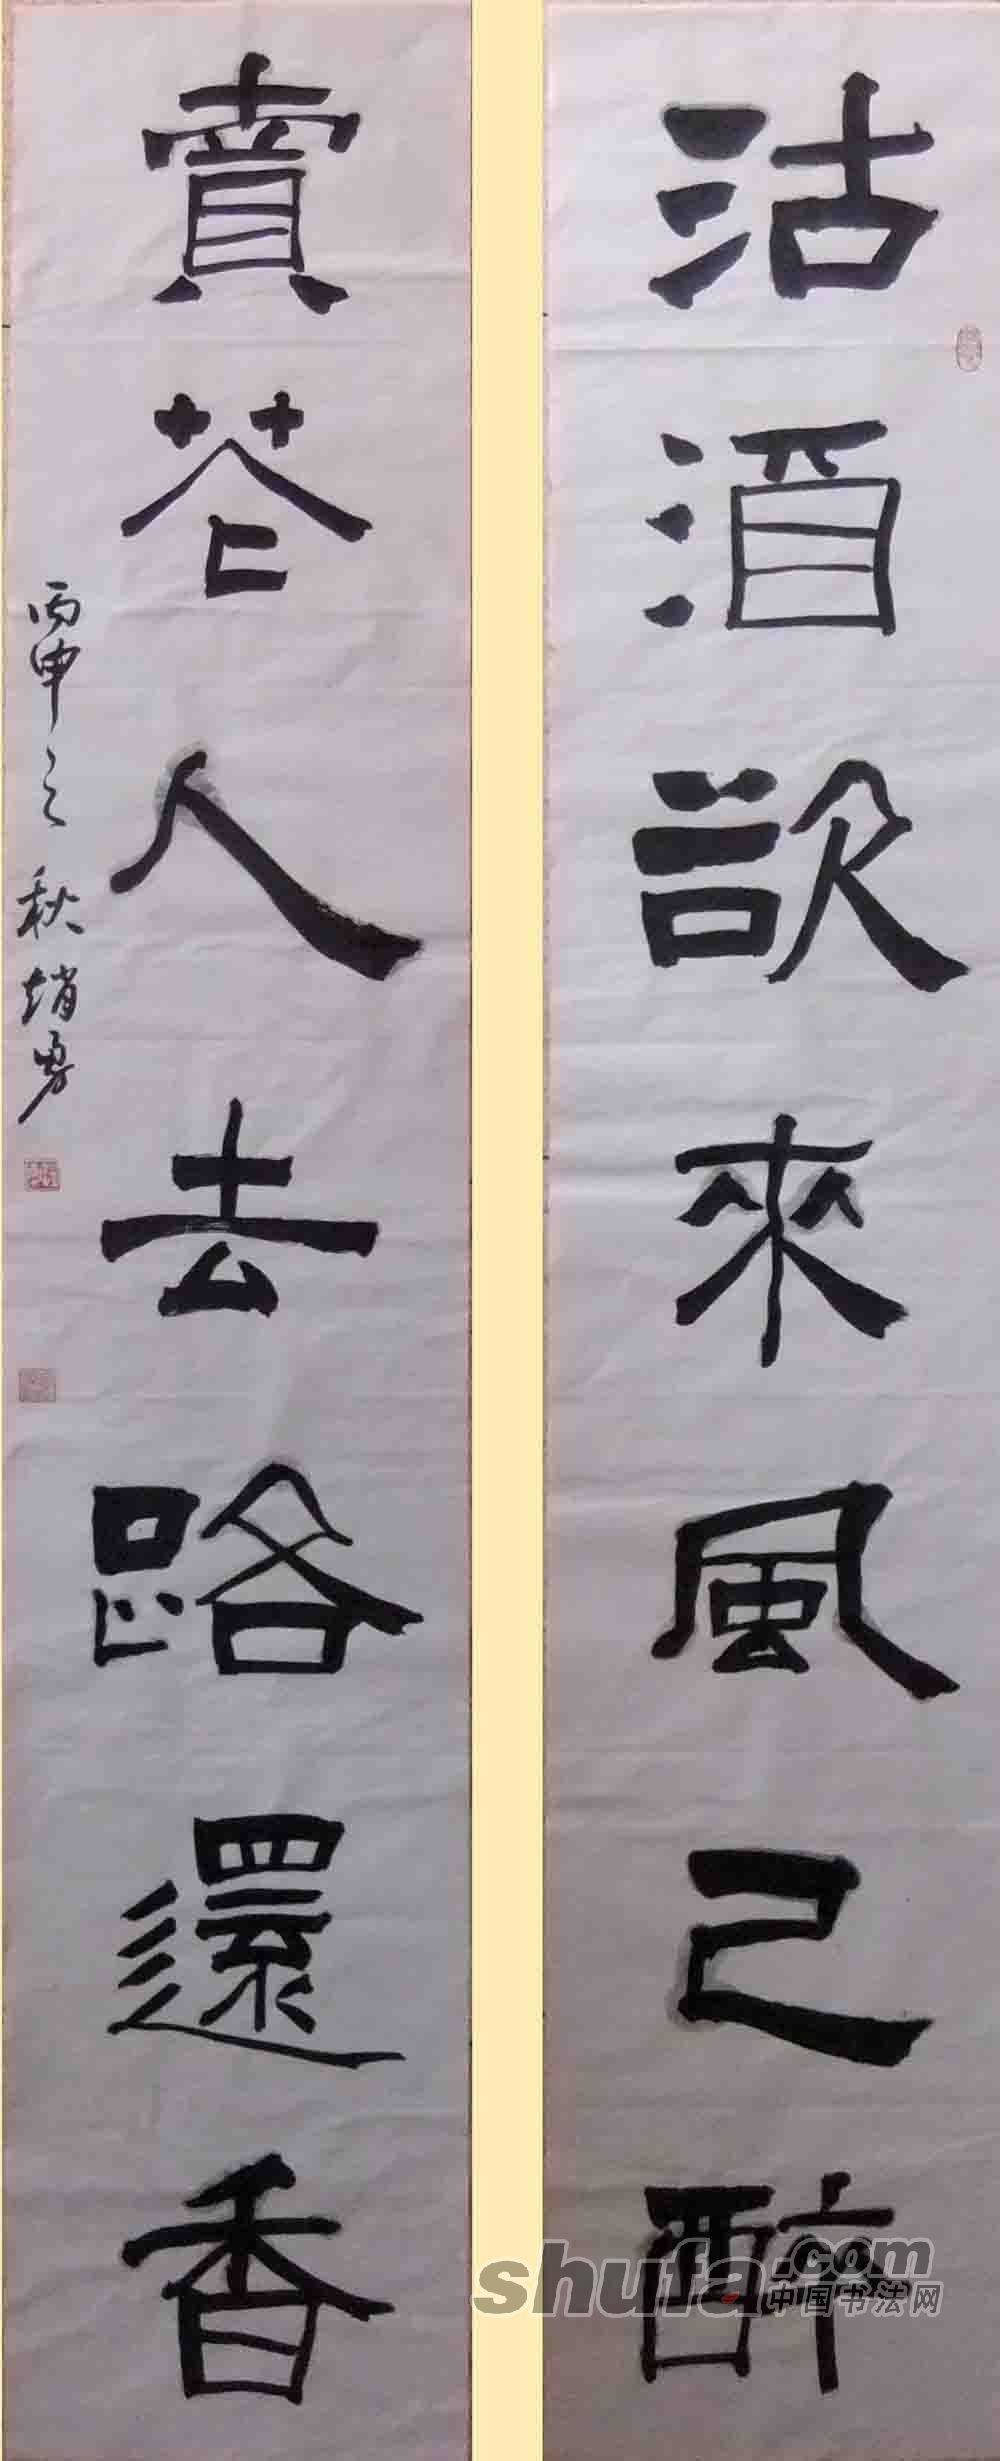 沽酒欲來風已醉
賣花人去路還香
丙申之秋趙勇
shufa.com
中国书法网